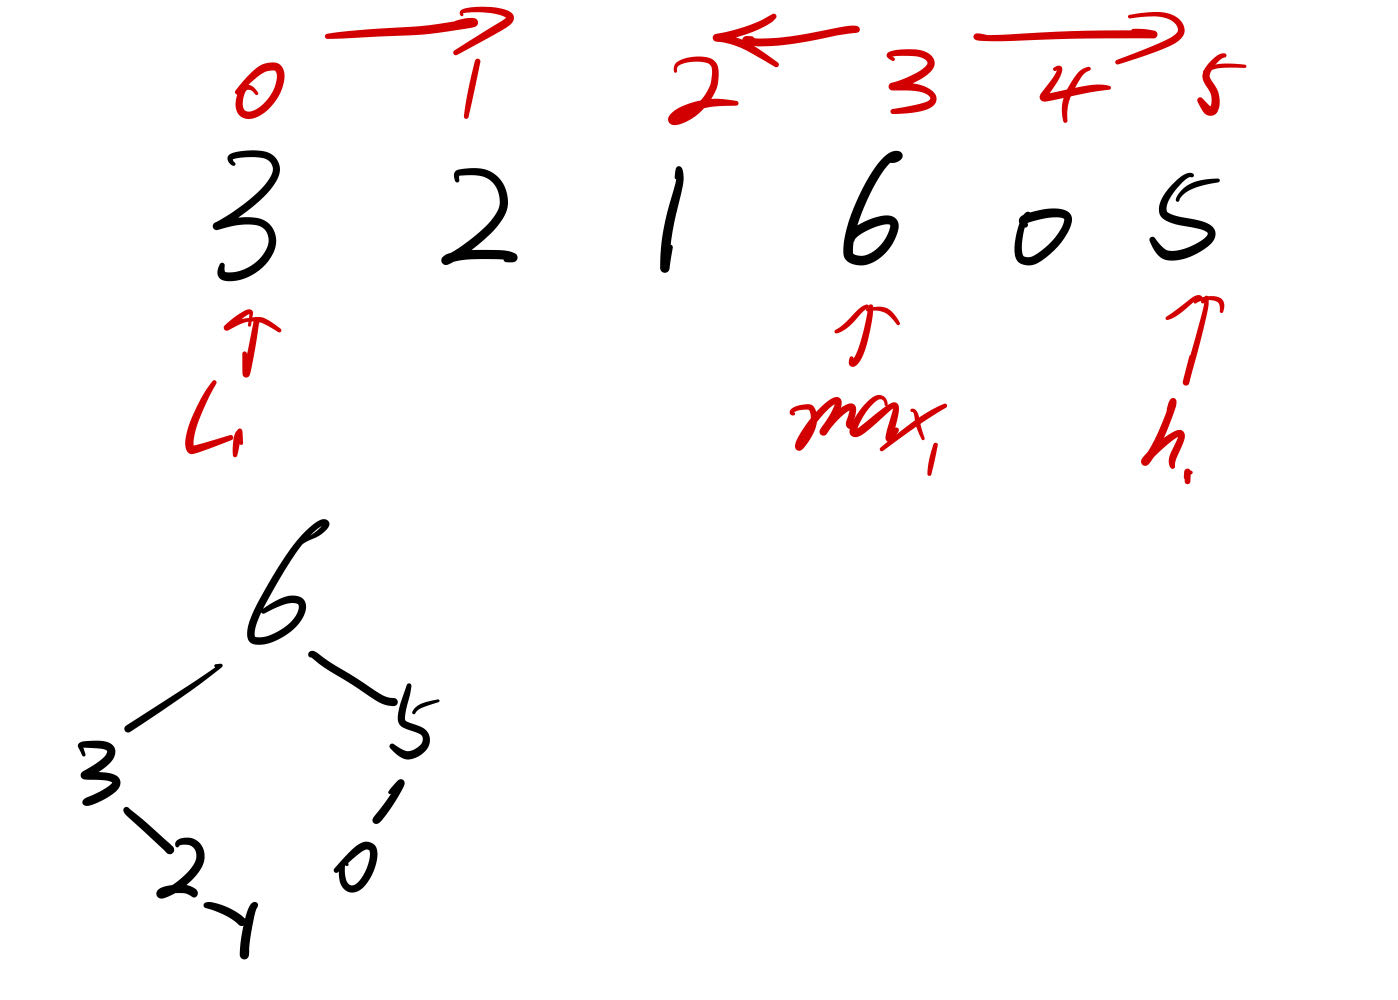 0 1 2 3 4 5
3 2 1 6 0 5
L1 max1 h1
6
3 5
2 0
1